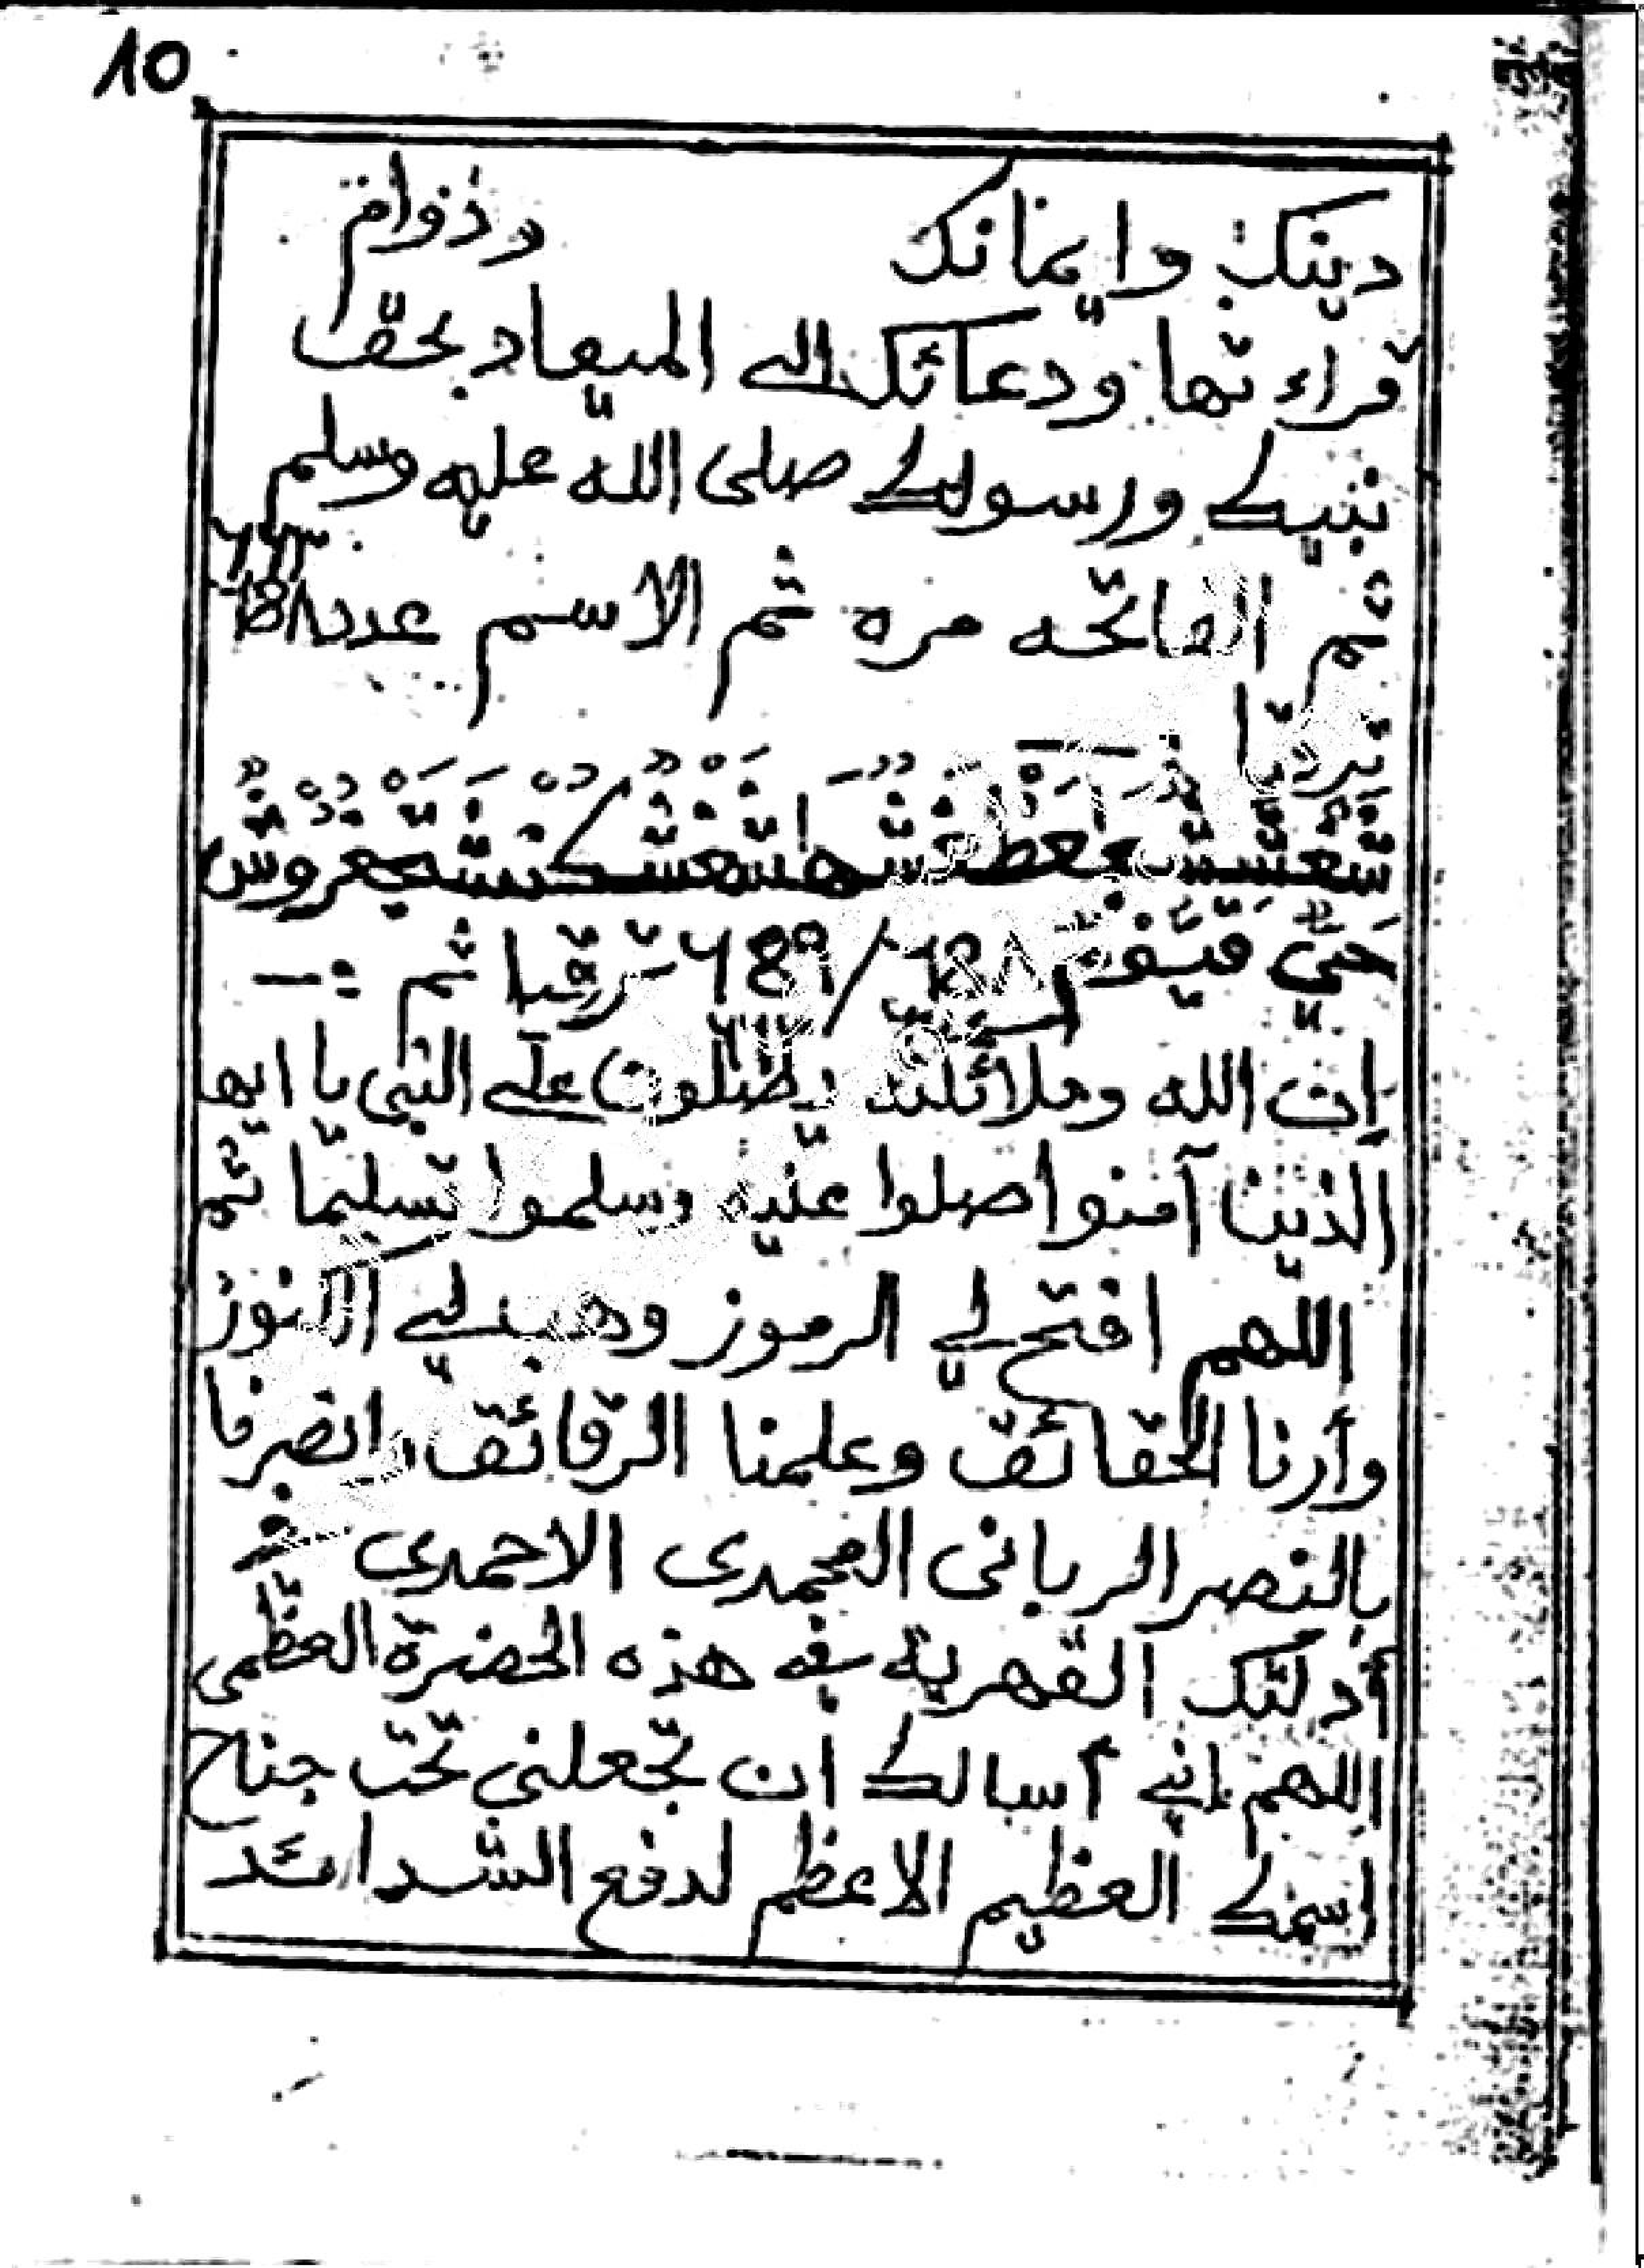 10
دينك وايمانك ودوام
قراءتها ودعائك الى الميعاد بحق
نبيك ورسولك صلى الله عليه وسلم
ثم الفاتحه مره ثم الاسم عدد
حي قيوم 489 / ترقيا ثم :-
ان الله وملائكته يصلون على النبي يا ايها
الذين آمنوا صلوا عليه وسلموا تسليما ثم
اللهم افتح لي الرموز وهب لي الكنوز
وأرنا الحقائق وعلمنا الرقائق وانصرنا
بالنصر الرباني المحمدى الاحمدي
أدلتك القهرية في هذه الحضرة العظمى
اللهم إني أسالك ان تجعلني تحت جناح
اسمك العظيم الاعظم لدفع الشدائد